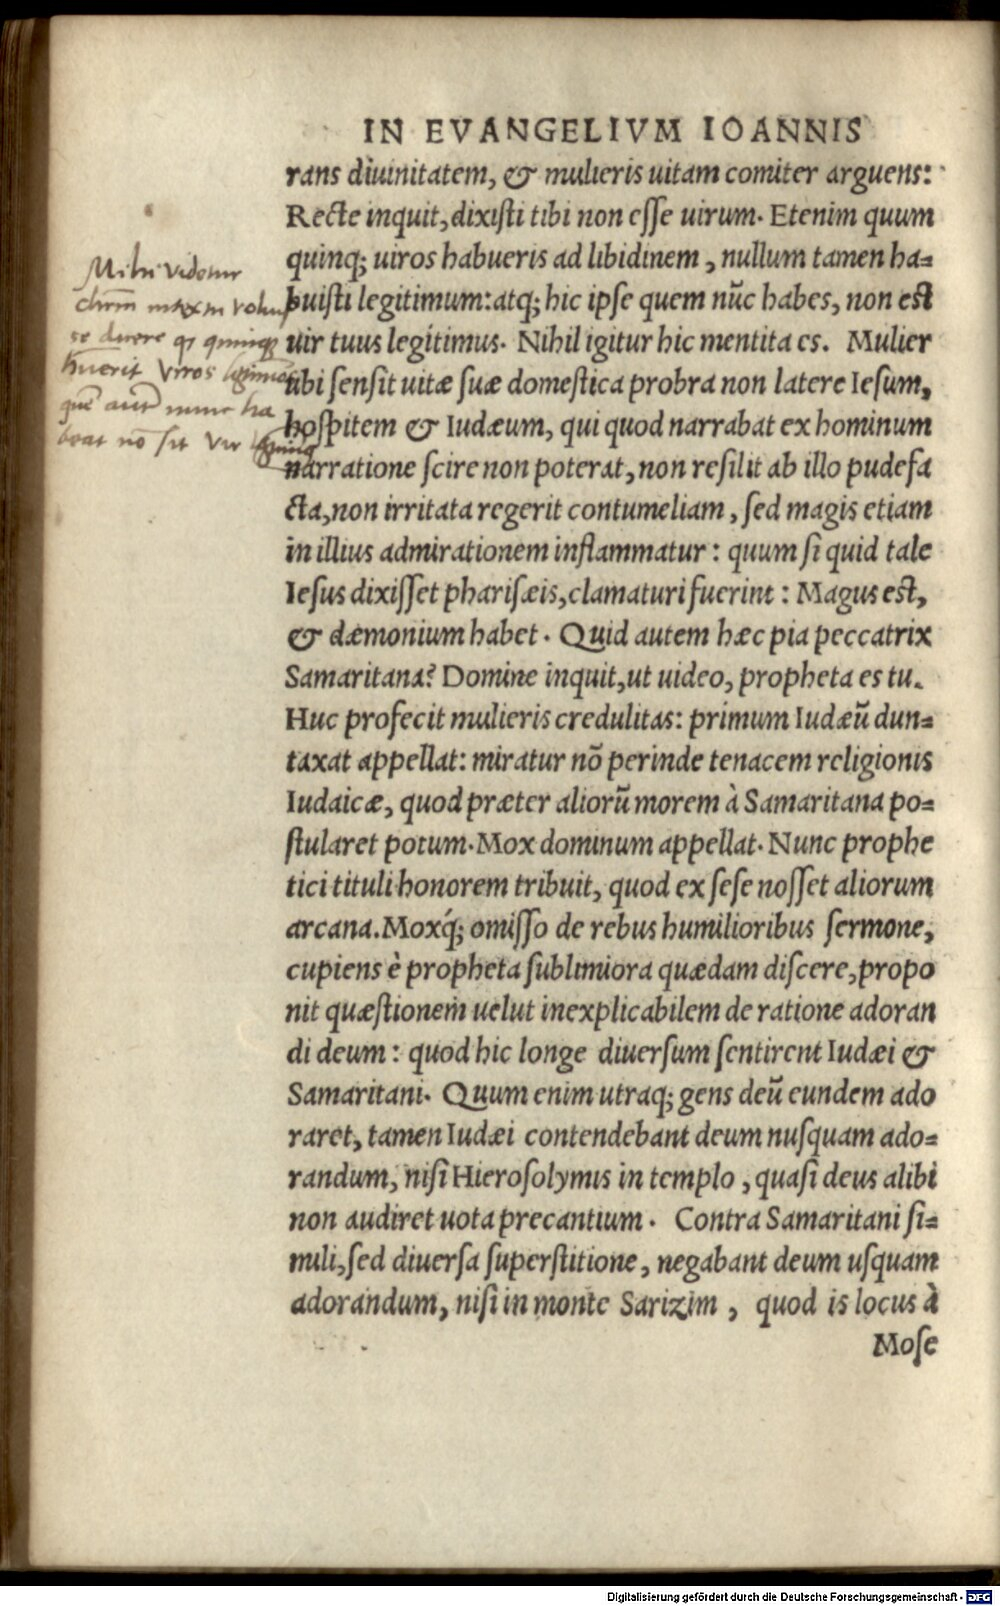 IN EVANGELIVM IOANNIS
rans diuinitatem, & mulieris uitam comiter arguens:
Recte inquit, dixisti tibi non esse uirum. Etenim quum
quinq; uiros habueris ad libidinem, nullum tamen ha=
buisti legitimum: atq; hic ipse quem nūc habes, non est
uir tuus legitimus. Nihil igitur hic mentita es. Mulier
ubi sensit uitæ suæ domestica probra non latere Iesum,
hospitem & Iudæum, qui quod narrabat ex hominum
narratione scire non poterat, non resilit ab illo pudefa
cta, non irritata regerit contumeliam, sed magis etiam
in illius admirationem inflammatur: quum si quid tale
Iesus dixisset pharisæis, clamaturi fuerint: Magus est,
& dæmonium habet. Quid autem hæc pia peccatrix
Samaritana? Domine inquit, ut uideo, propheta es tu.
Huc profecit mulieris credulitas: primum Iudæū dun=
taxat appellat: miratur nō perinde tenacem religionis
Iudaicæ, quod præter aliorū morem à Samaritana po=
stularet potum. Mox dominum appellat. Nunc prophe
tici tituli honorem tribuit, quod ex sese nosset aliorum
arcana. Moxq́; omisso de rebus humilioribus sermone,
cupiens è propheta sublimiora quædam discere, propo
nit quæstionem uelut inexplicabilem de ratione adoran
di deum: quod hic longe diuersum sentirent Iudæi &
Samaritani. Quum enim utraq; gens deū eundem ado
raret, tamen Iudæi contendebant deum nusquam ado=
randum, nisi Hierosolymis in templo, quasi deus alibi
non audiret uota precantium. Contra Samaritani si=
mili, sed diuersa superstitione, negabant deum usquam
adorandum, nisi in monte Sarizim, quod is locus à
Mose
Mihi videtur
voluis
se dicere quinque
viros
quē nunc ha
beat nō sit vir
Digitalisierung gefördert durch die Deutsche Forschungsgemeinschaft - DFG